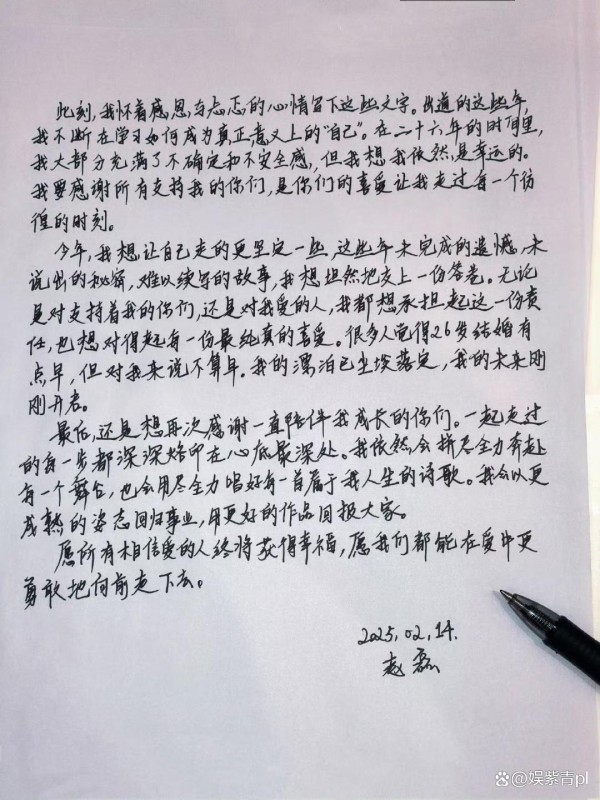 此刻，我怀着感恩与忐忑的心情留下这些文字。出道的这些年，
我不断在学习如何成为真正意义上的“自己”。在二十六年的时间里，
我大部分充满了不确定和不安全感，但我想我依然是幸运的。
我要感谢所有支持我的你们，是你们的喜爱让我走过每一个彷
徨的时刻。
今年，我想让自己走的更坚定一些，这些年未完成的遗憾，未
说出的秘密，难以续写的故事，我想坦然地交上一份答卷。无论
是对支持着我的你们，还是对我爱的人，我都想承担起这一份责
任，也想对得起每一份最纯真的喜爱。很多人觉得26岁结婚有
点早，但对我来说不算早。我的漂泊已尘埃落定，我的未来刚
刚开启。
最后，还是想再次感谢一直陪伴我成长的你们。一起走过
的每一步都深深烙印在心底最深处。我依然会拼尽全力奔赴
每一个舞台，也会用尽全力唱好每一首属于我人生的诗歌。我会以更
成熟的姿态回归事业，用更好的作品回报大家。
愿所有相信爱的人终将获得幸福，愿我们都能在爱中更
勇敢地向前走下去。
2025.02.14.
赵磊
@娱紫青pl